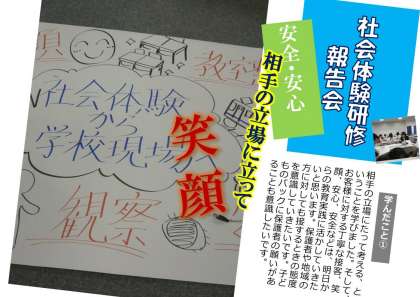 社会体験研修
報告会
安全・安心
相手の立場に立って
笑顔
教室
社会体験
から
学校現場へ
観察
学んだこと①
相手の立場にたって考える、と
いうことを学びました。そして、
お客様に対する丁寧な接客、笑
顔、安心、安全などは、明日か
らの教育実践に活かしていきた
いと思います。保護者や地域の
方に対しても接するときの態度
を意識していきたいです。子ど
ものバックに保護者の願いがあ
ることも意識したいです。